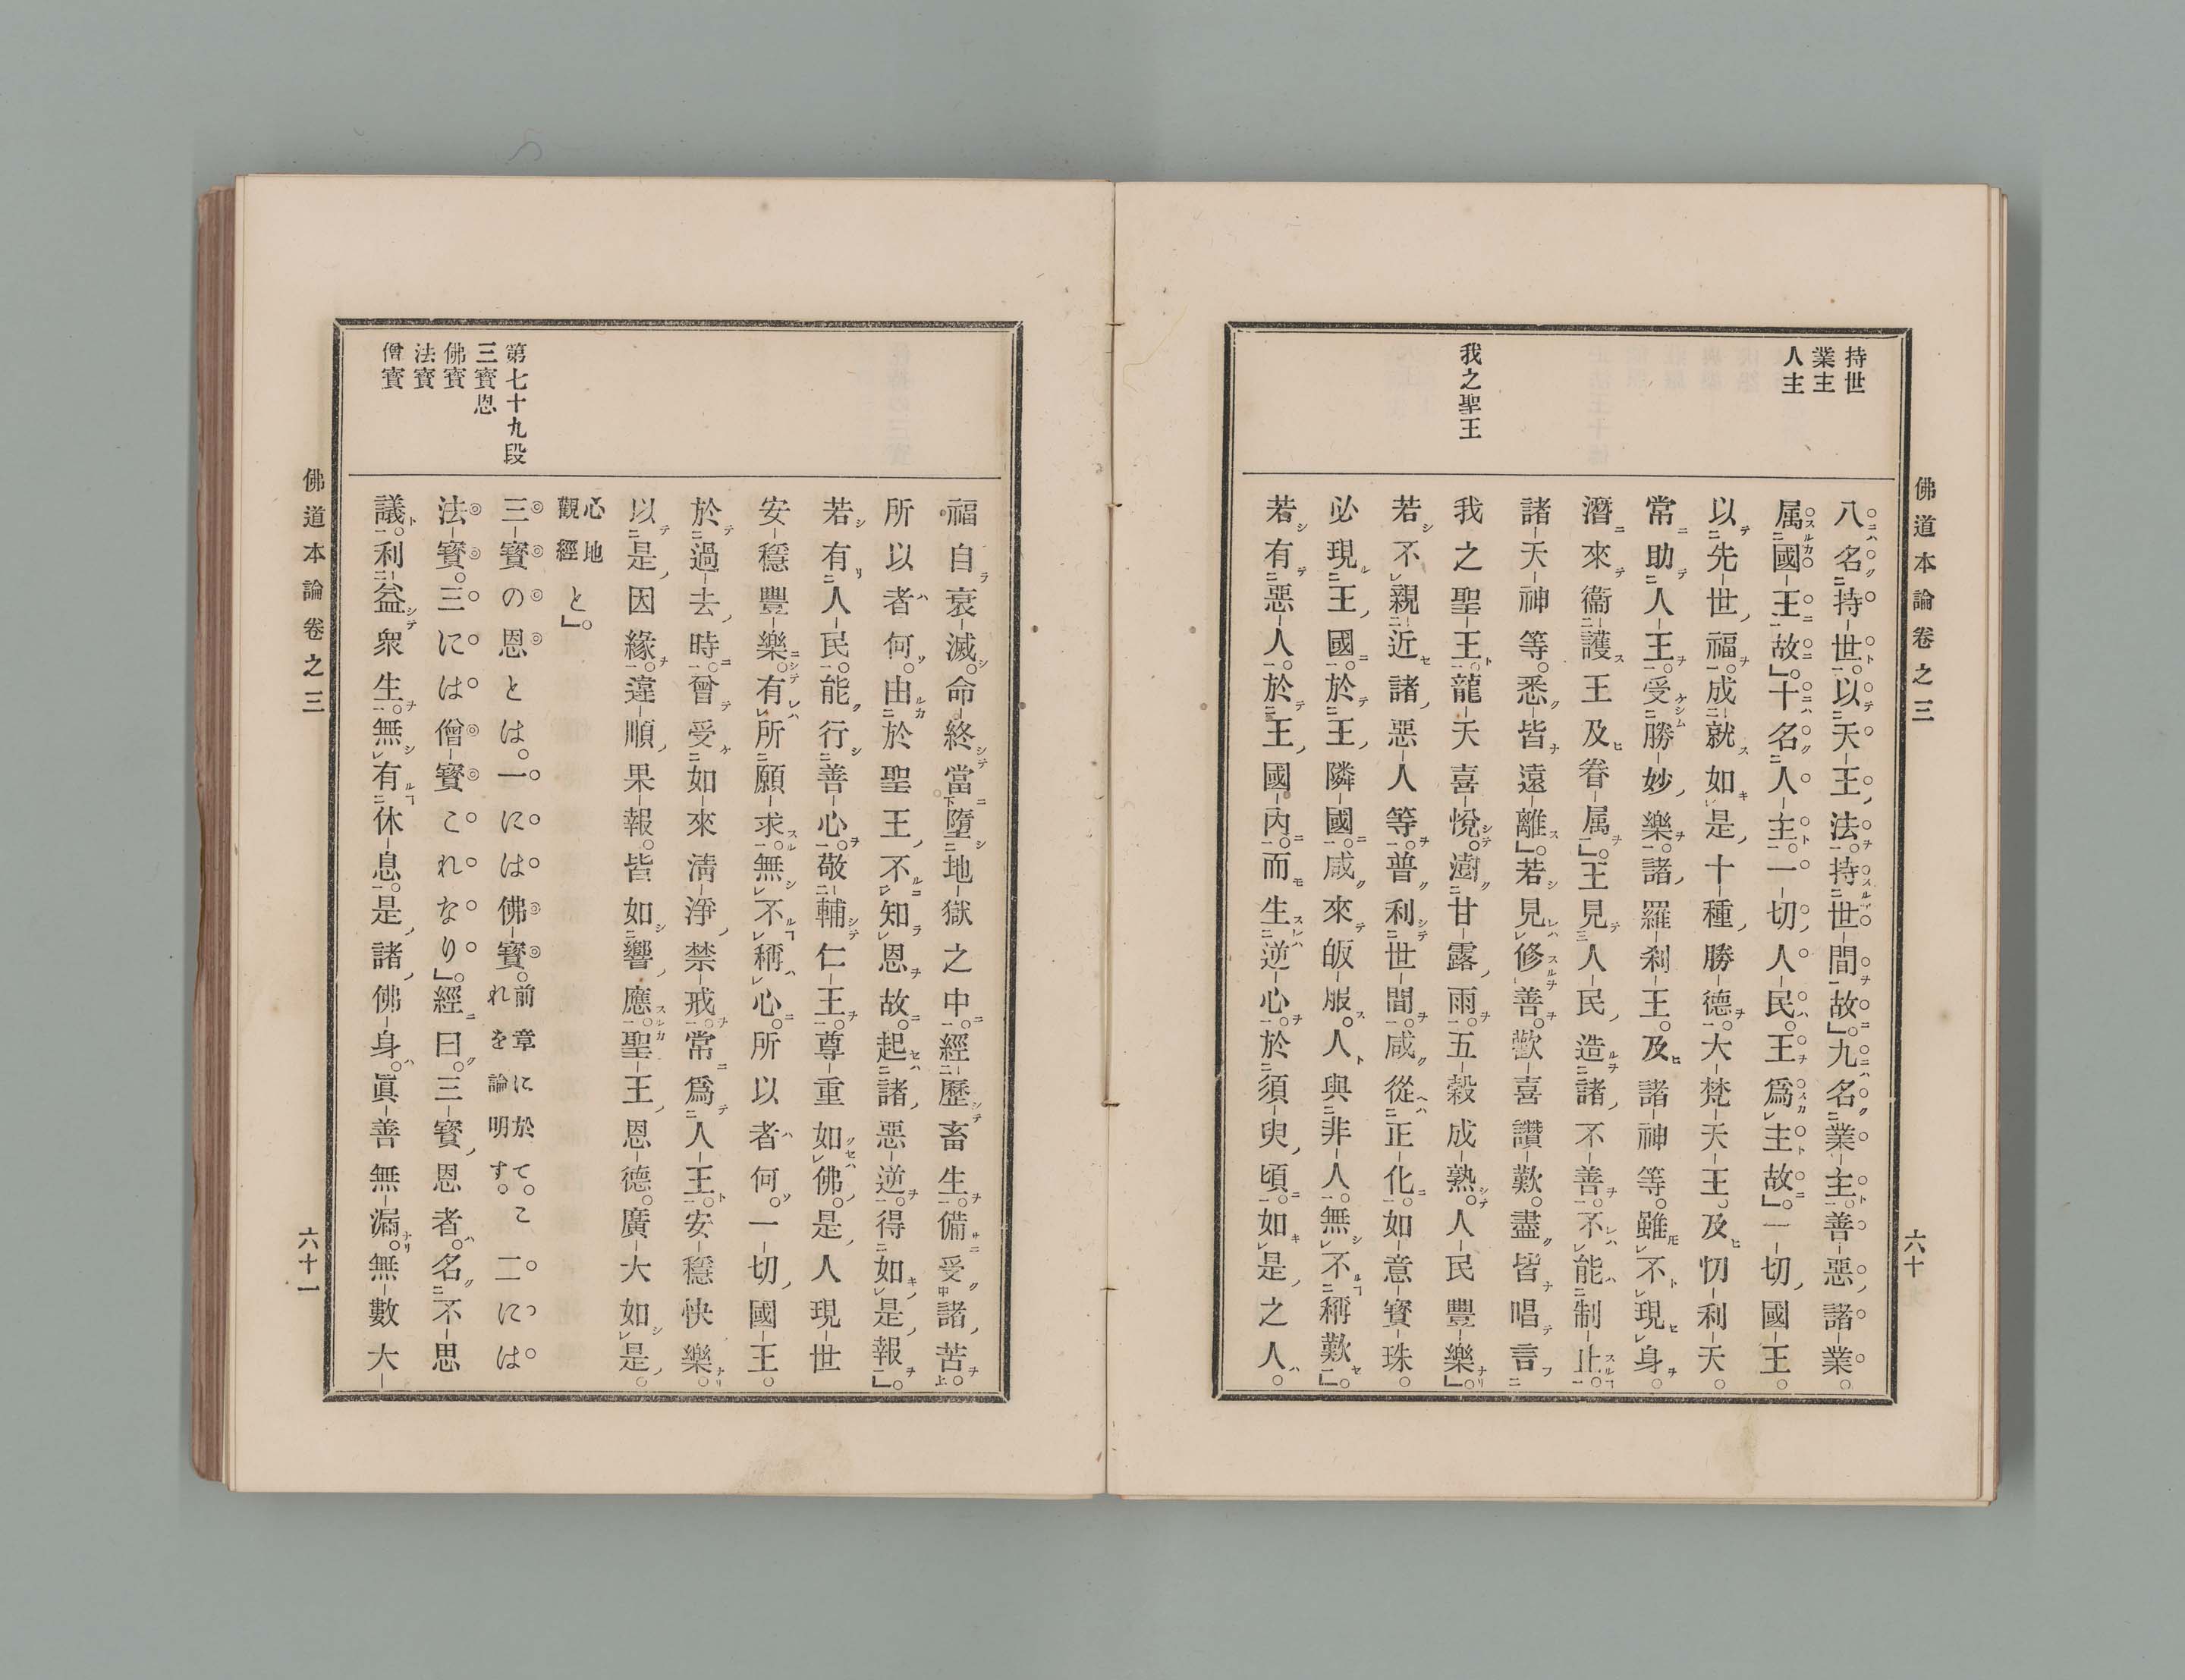 佛道本論卷之三
六十
持世
業主
人主
我之聖王
八名持世。以天王法。持世間故」。九名業主。善惡諸業。
属國王故」。十名人主。一切人民。王爲主故」。一切國王。
以先世福。成就如是。十種勝德。大梵天王。及忉利天。
常助人王。受勝妙樂。諸羅刹王。及諸神等。雖不現身。
潛來衞護王及眷属」。王見人民造諸不善。不能制止。
諸天神等。悉皆遠離」。若見修善。歡喜讚歎。盡皆唱言
我之聖王。龍天喜悅。澍甘露雨。五穀成熟。人民豐樂」。
若不親近諸惡人等。普利世間。咸從正化。如意寳珠。
必現王國。於王隣國。咸來皈服。人與非人。無不稱歎」。
若有惡人。於王國內。而生逆心。於須臾頃。如是之人。
福自衰滅。命終當墮地獄之中。經歷畜生。備受諸苦。
所以者何。由於聖王不知恩故。起諸惡逆。得如是報」。
若有人民。能行善心。敬輔仁王。尊重如佛。是人現世
安穩豐樂。有所願求。無不稱心。所以者何。一切國王。
於過去時。曾受如來淸淨禁戒。常爲人王。安穩快樂。
以是因緣。違順果報。皆如響應。聖王恩德。廣大如是。
心地觀經と」。
三寳の恩とは。一には佛寳。前章に於て。これを論明す。二には
法寳。三には僧寳これなり」。經曰。三寳恩者。名不思
議。利益衆生。無有休息。是諸佛身。眞善無漏。無數大
第七十九段
三寳恩
佛寳
法寳
僧寳
佛道本論卷之三
六十一